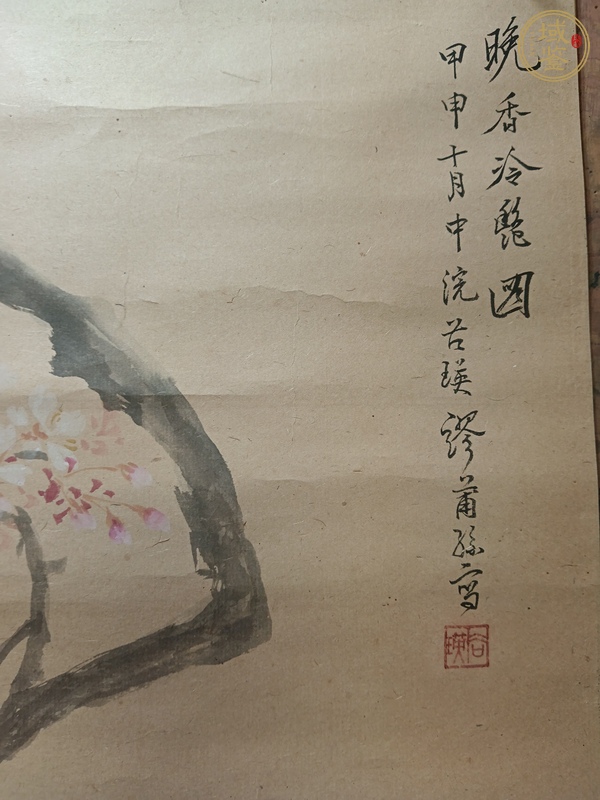 晚香冷艷圖
甲申十月中浣谷瑛繆莆孫寫
谷瑛
域鑒